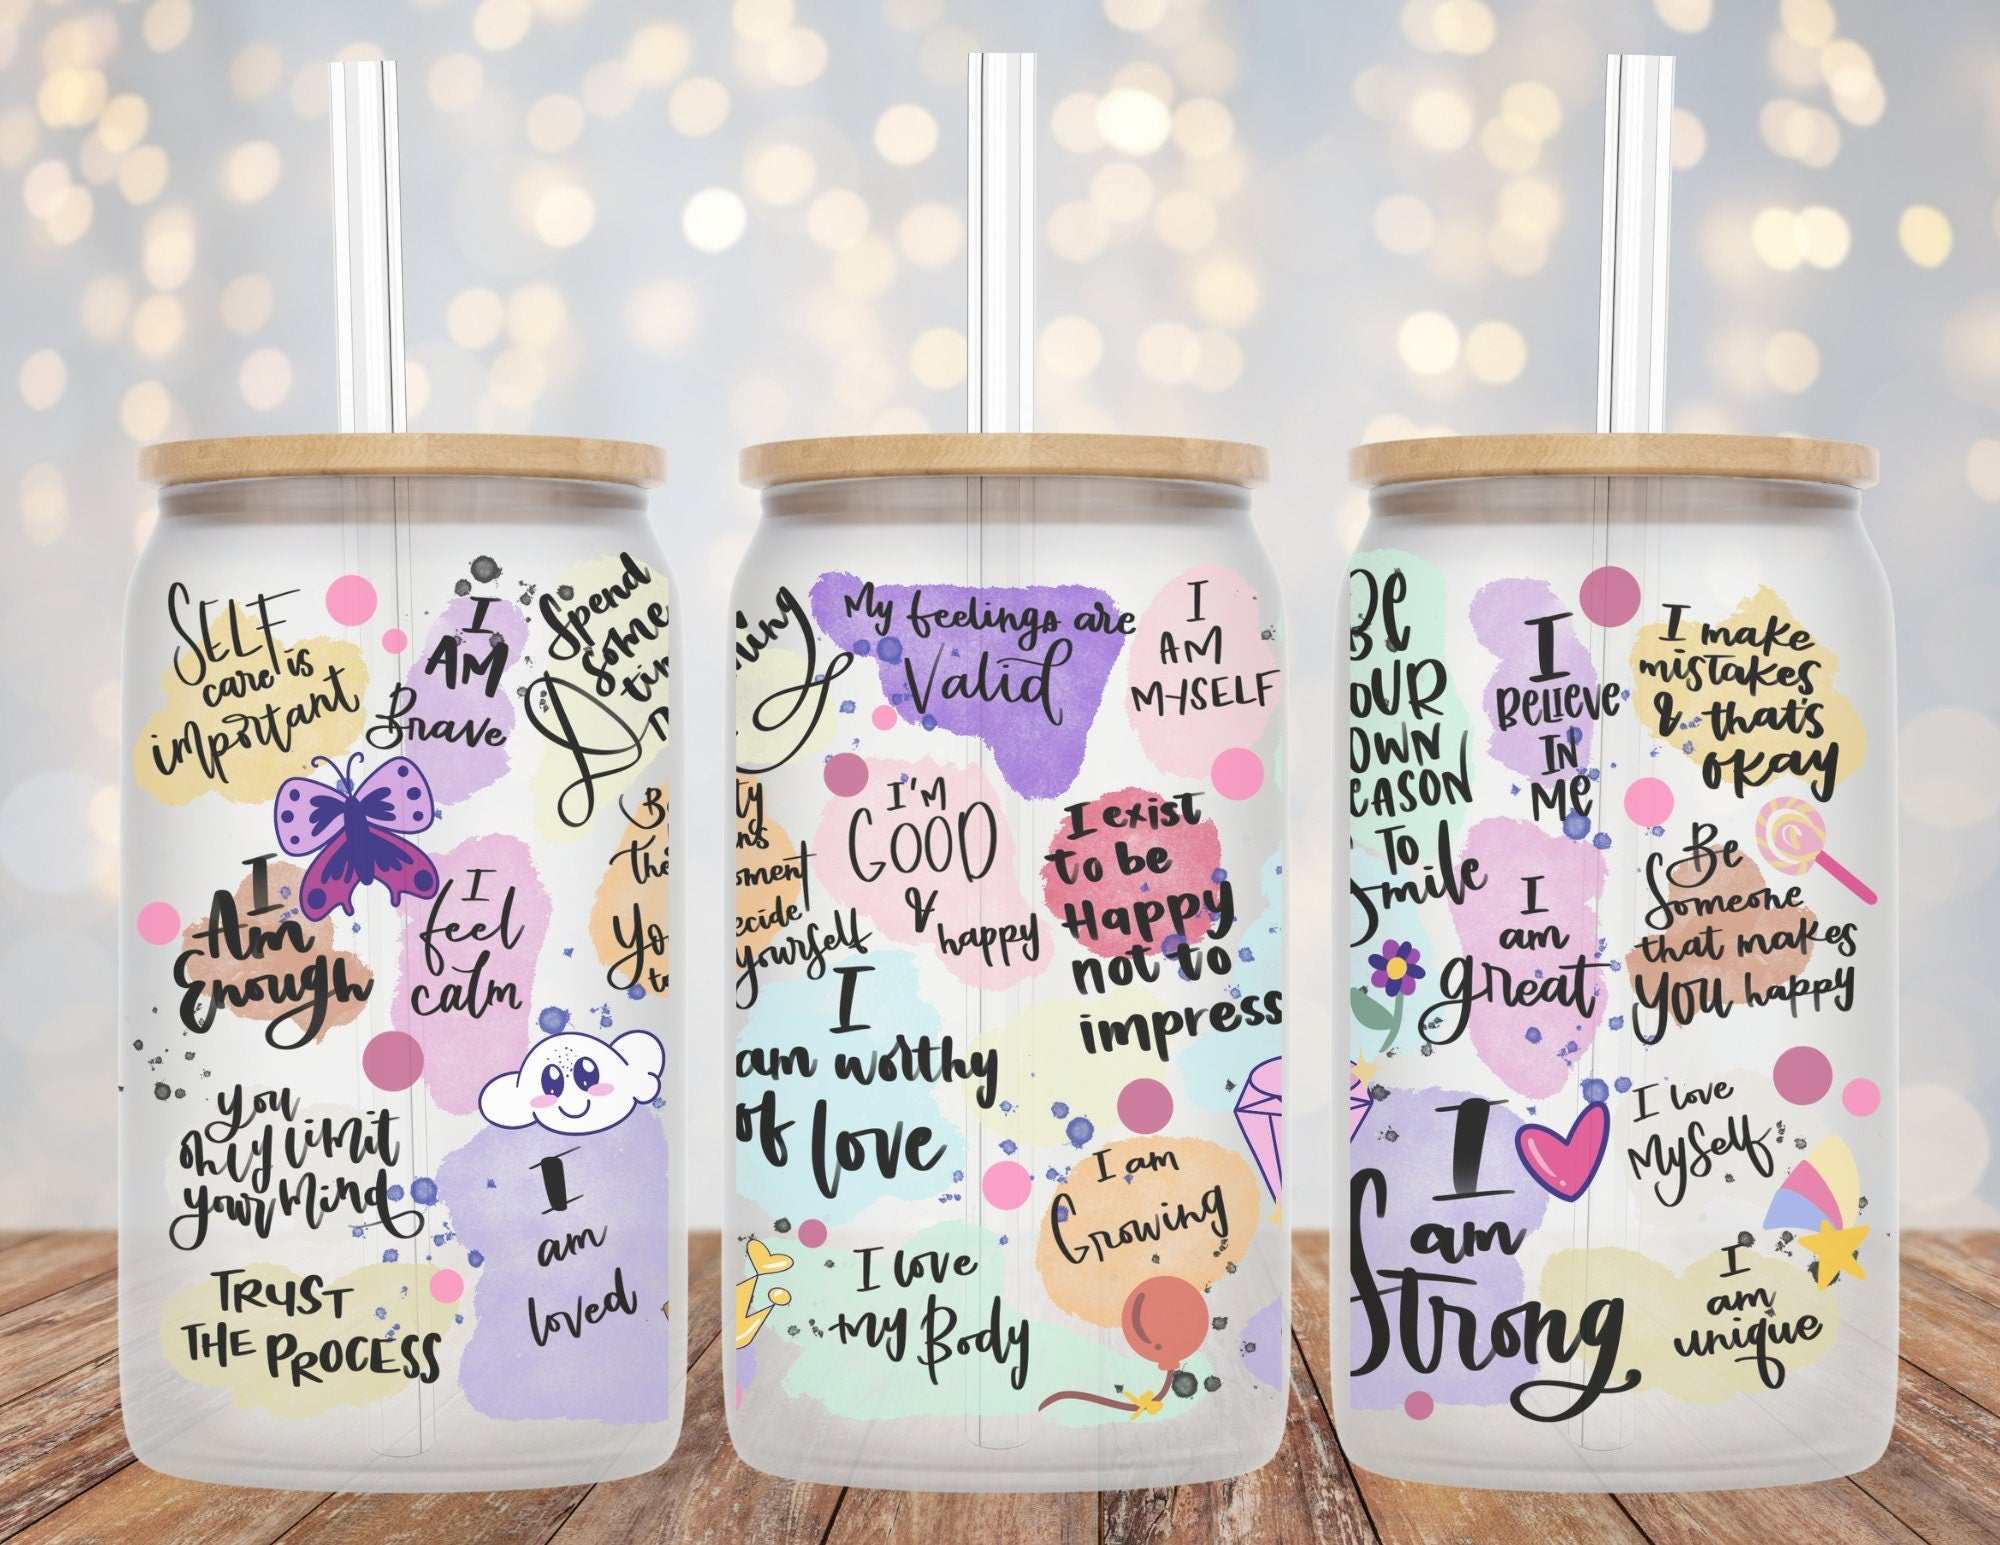 SELF
care is
important
I
AM
Brave
Spend
some
I
Am
Enough
I
feel
calm
you
only limit
your mind
I
am
loved
TRUST
THE PROCESS
My feelings are
Valid
I
AM
MYSELF
I'M
GOOD
&
happy
I exist
to be
Happy
not to
impress
yourself
I
am worthy
of love
I am
Growing
I love
my Body
Be
OUR
OWN
EASON
TO
Smile
I
BELIEVE
IN
ME
I make
mistakes
& that's
okay
I
am
great
Be
Someone
that makes
you happy
I love
Myself
I
am
Strong
I
am
unique